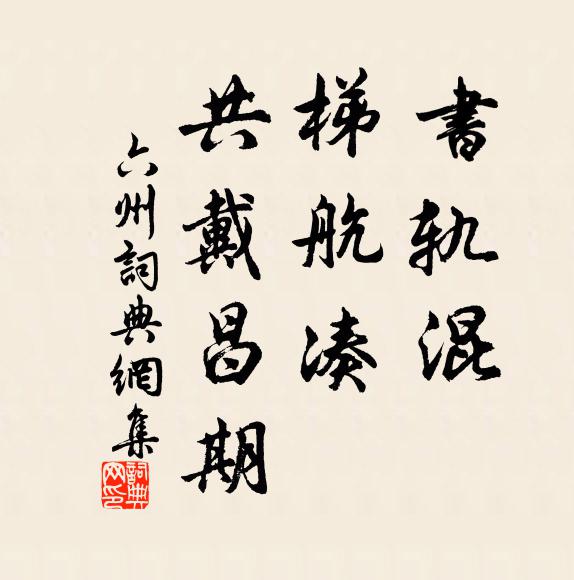 書軌混
梯航湊
共戴昌期
六州詞典網集
詞典网印